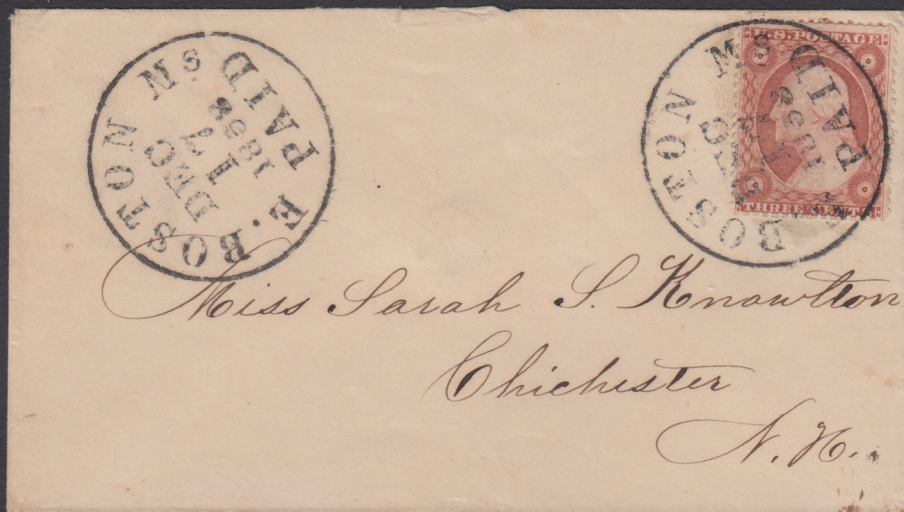 E. BOSTON Ms
PAID
DEC
17
1858
E. BOSTON Ms
PAID
DEC
17
U.S. POSTAGE
THREE CENTS
Miss Sarah S. Knowlton
Chichester
N. H.